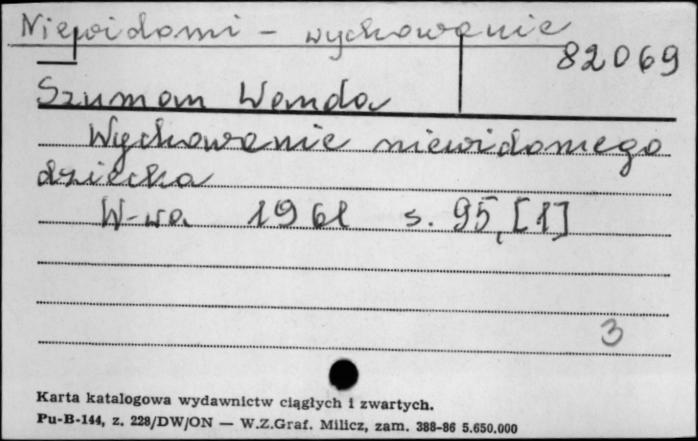 Niewidomi - wychowanie
82069
Szuman Wanda
Wychowanie niewidomego
dziecka
W-wa 1961 s. 95, [1]
3
Karta katalogowa wydawnictw ciągłych i zwartych.
Pu-B-144, z. 228/DW/ON — W.Z.Graf. Milicz, zam. 388-86 5.650.000